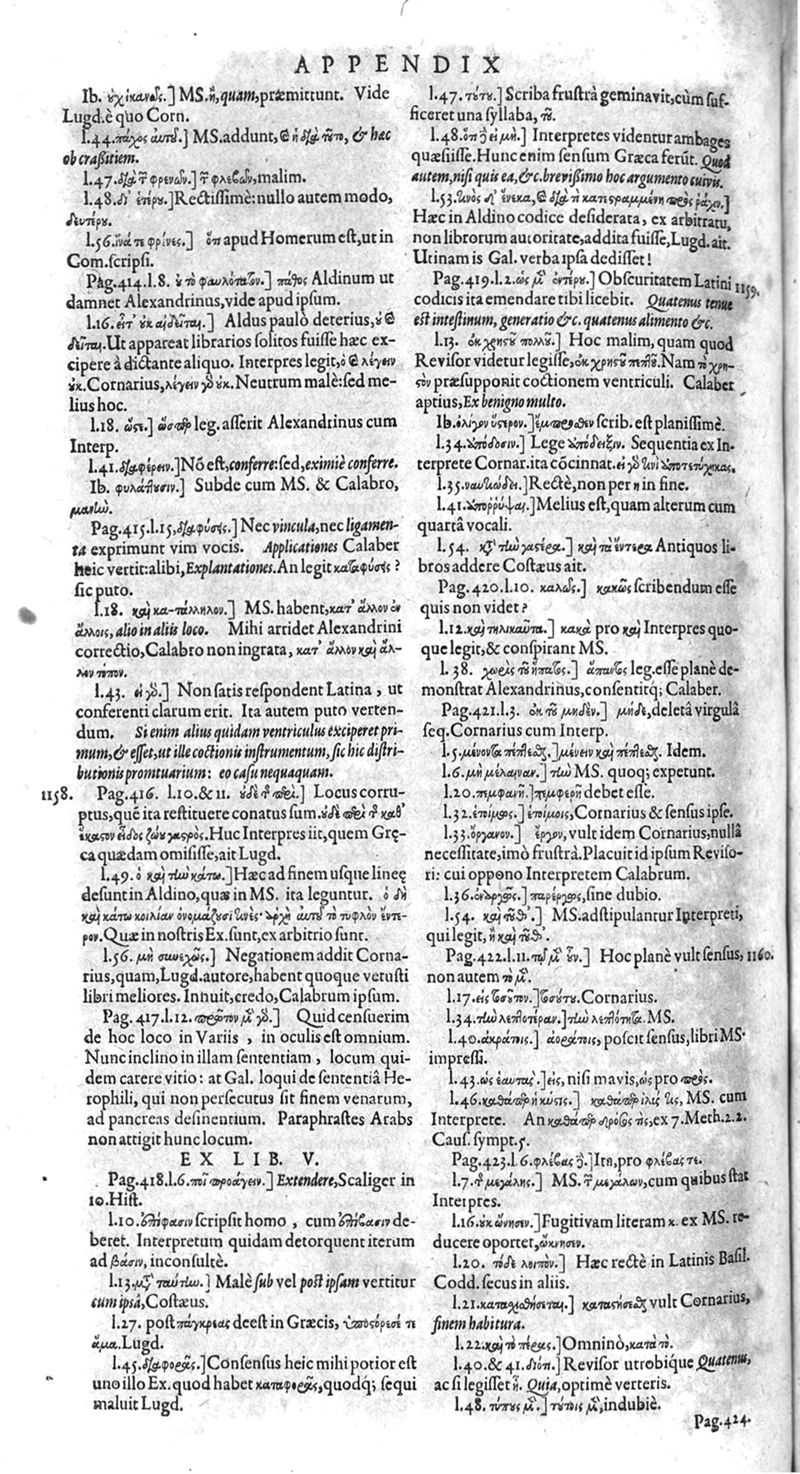 APPENDIX
Ib. οὐχ ἱκανῶς.] MS. ἢ, quam, præmittunt. Vide
Lugd. è quo Corn.
l.44. πάχος αὐτοῦ.] MS. addunt, καὶ ἡ διὰ τοῦτο, & hac
ob crassitiem.
l.47. διὰ τῶν φρενῶν.] τῶν φλεβῶν, malim.
l.48. δι' ἑτέρου.] Rectissimè: nullo autem modo,
δευτέρου.
l.56. ἵνα τε φρένες.] ὅπου apud Homerum est, ut in
Com. scripsi.
Pag. 414. l.8. πάθος Aldinum ut
damnet Alexandrinus, vide apud ipsum.
l.16. Aldus paulò deterius, οὐ καὶ
δεῖται. Ut appareat librarios solitos fuisse hæc ex-
cipere à dictante aliquo. Interpres legit, ὁ καὶ λέγειν
οὐκ. Cornarius, λέγειν γὸ οὐκ. Neutrum malè: sed me-
lius hoc.
l.18. ὥστε.] ὥσπερ leg. asserit Alexandrinus cum
Interp.
l.41. διαφέρειν.] Nõ est, conferre: sed, eximiè conferre.
Ib. φυλάττουσιν.] Subde cum MS. & Calabro,
Pag. 415. l.15. διαφύσεις.] Nec vincula, nec ligamen-
ta exprimunt vim vocis. Applicationes Calaber
heic vertit: alibi, Explantationes. An legit καταφύσεις?
sic puto.
l.18. καὶ κα-τάλληλον.] MS. habent, κατ' ἄλλον ἐν
ἄλλοις, alio in aliis loco. Mihi arridet Alexandrini
correctio, Calabro non ingrata, κατ' ἄλλον καὶ ἄλ-
λον τόπον.
l.43. εἰ γὸ.] Non satis respondent Latina, ut
conferenti clarum erit. Ita autem puto verten-
dum. Si enim alius quidam ventriculus exciperet pri-
mum, & esset, ut ille coctionis instrumentum, sic hic distri-
butionis promtuarium: eo casu nequaquam.
1158. Pag. 416. l.10. & 11. οὐδὲ τ̃ περὶ.] Locus corru-
ptus, quẽ ita restituere conatus sum. οὐδὲ περὶ τ̃ καθ'
ἕκαστον εἶδος ζώου γαστρός. Huc Interpres iit, quem Grę-
ca quædam omisisse, ait Lugd.
l.49. ὁ καὶ τὴν κάτω.] Hæc ad finem usque lineę
desunt in Aldino, quæ in MS. ita leguntur. ὁ δὴ
καὶ κάτω κοιλίαν ὀνομάζουσί τινες· ἀρχὴ αὐτοῦ τὸ τυφλὸν ἔντε-
ρον. Quæ in nostris Ex. sunt, ex arbitrio sunt.
l.56. μὴ συνεχῶς.] Negationem addit Corna-
rius, quam, Lugd. autore, habent quoque vetusti
libri meliores. Innuit, credo, Calabrum ipsum.
Pag. 417. l.12. πρῶτον μὲν γὸ.] Quid censuerim
de hoc loco in Variis, in oculis est omnium.
Nunc inclino in illam sententiam, locum qui-
dem carere vitio: at Gal. loqui de sententiâ He-
rophili, qui non persecutus sit finem venarum,
ad pancreas desinentium. Paraphrastes Arabs
non attigit hunc locum.
EX LIB. V.
Pag. 418. l.6. προάγειν.] Extendere, Scaliger in
10. Hist.
l.10. ἐπίφασιν scripsit homo, cum ἐπίβασιν de-
beret. Interpretum quidam detorquent iterum
ad βάσιν, inconsultè.
l.13. μετὰ ταύτην.] Malè sub vel post ipsam vertitur
cum ipsâ, Costæus.
l.27. post πάγκρεας deest in Græcis, ὑποστόρεσέ τε
ἅμα. Lugd.
l.45. διαφορᾶς.] Consensus heic mihi potior est
uno illo Ex. quod habet καταφορᾶς, quodq; sequi
maluit Lugd.
l.47. τούτου.] Scriba frustrà geminavit, cùm suf-
ficeret una syllaba, τοῦ.
l.48. ὅτι εἰ μή.] Interpretes videntur ambages
quæsiisse. Hunc enim sensum Græca ferũt. Quod
autem, nisi quis ea, &c. brevissimo hoc argumento cuivis.
l.53.
Hæc in Aldino codice desiderata, ex arbitratu,
non librorum autoritate, addita fuisse, Lugd. ait.
Utinam is Gal. verba ipsa dedisset!
Pag. 419. l.2. ὡς μὲν ἐντέρου.] Obscuritatem Latini 1159.
codicis ita emendare tibi licebit. Quatenus tenue
est intestinum, generatio &c. quatenus alimento &c.
l.13. ἐκ χρηστοῦ πολλοῦ.] Hoc malim, quam quod
Revisor videtur legisse, ἐκ χρηστοῦ πεπτοῦ. Nam τὸ χρη-
στὸν præsupponit coctionem ventriculi. Calaber
aptius, Ex benigno multo.
Ib. ὀλίγον ὕστερον.] ἔμπροσθεν scrib. est planissimè.
l.34. ὑπόδοσιν.] Lege ὑπόδειξιν. Sequentia ex In-
terprete Cornar. ita cõcinnat.
l.35. ναυτιώδει.] Rectè, non per η in fine.
l.41. ὑπορρύψαι.] Melius est, quam alterum cum
quartâ vocali.
l.54. κατὰ τὴν γαστέρα.] καὶ τὰ ἔντερα Antiquos li-
bros addere Costæus ait.
Pag. 420. l.10. καλῶς.] κακῶς scribendum esse
quis non videt?
l.12. καὶ τηλικαῦτα.] κακὰ pro καὶ Interpres quo-
que legit, & conspirant MS.
l.38. χωρὶς τοῦ ἥπατος.] ἅπαντος leg. esse planè de-
monstrat Alexandrinus, consentitq; Calaber.
Pag. 421. l.3. ἐκ τοῦ μηδέν.] μηδὲ, deletâ virgulâ
seq. Cornarius cum Interp.
l.5. μένοντα πέττεσθαι.] μένειν καὶ πέττεσθαι. Idem.
l.6. μὴ μέλαιναν.] τὴν MS. quoq; expetunt.
l.20. πεμφανῆ.] πεμφερῆ debet esse.
l.32. ἑτοίμως.] ἑτοίμοις, Cornarius & sensus ipse.
l.33. ὄργανον.] ἔργον, vult idem Cornarius, nullâ
necessitate, imò frustrà. Placuit id ipsum Reviso-
ri: cui oppono Interpretem Calabrum.
l.36. ἐναργῶς.] παρέργως, sine dubio.
l.54. καὶ τοῦθ'.] MS. adstipulantur Interpreti,
qui legit, ἢ καὶ τοῦθ'.
Pag. 422. l.11. Hoc planè vult sensus, 1160.
non autem τὸ μὲν.
l.17. εἰς τοσοῦτον.] τοσούτου. Cornarius.
l.34. τὴν λεπτοτέραν.] τὴν λεπτότητα. MS.
l.40. ἀκράτοις.] ἀοράτοις, poscit sensus, libri MS.
impressi.
l.43. ὡς ἑαυτὰς.] εἰς, nisi mavis, ὡς pro πρὸς.
l.46. καθάπερ ἡ κύστις.] MS. cum
Interprete. ex 7. Meth. 2. 2.
Caus. sympt. 5.
Pag. 423. l.6. Ita, pro φλέβας τε.
l.7. τ̃ μεγάλης.] MS. τῶν μεγάλων, cum quibus stat
Interpres.
l.16. οὐκ ὤνησεν.] Fugitivam literam κ. ex MS. re-
ducere oportet, ὤκνησεν.
l.20. τόδε λοιπόν.] Hæc rectè in Latinis Basil.
Codd. secus in aliis.
l.21. vult Cornarius,
finem habitura.
l.22. καὶ τὸ πέρας.] Omninò, κατὰ τὸ.
l.40. & 41. διότι.] Revisor utrobique Quatenus,
ac si legisset ᾗ. Quia, optimè verteris.
l.48. τύπους μὲν.] τούτοις μὲν, indubiè.
Pag. 424.